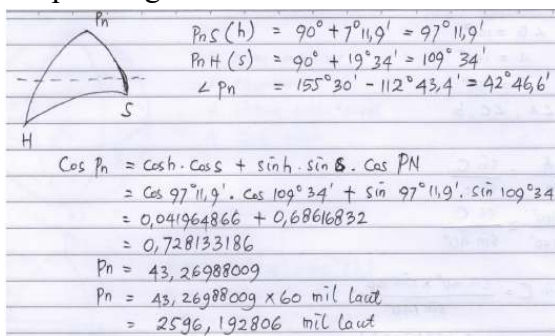 Pn
S
H
PnS (h) = 90° + 7°11,9' = 97°11,9'
PnH (s) = 90° + 19°34' = 109°34'
∠ Pn = 155°30' - 112°43,4' = 42°46,6'
Cos Pn = cosh . cos s + sinh . sin s . Cos PN
= Cos 97°11,9' . Cos 109°34' + Sin 97°11,9' . Sin 109°34
= 0,041964866 + 0,68616832
= 0,728133186
Pn = 43,26988009
Pn = 43,26988009 x 60 mil laut
= 2596,192806 mil laut